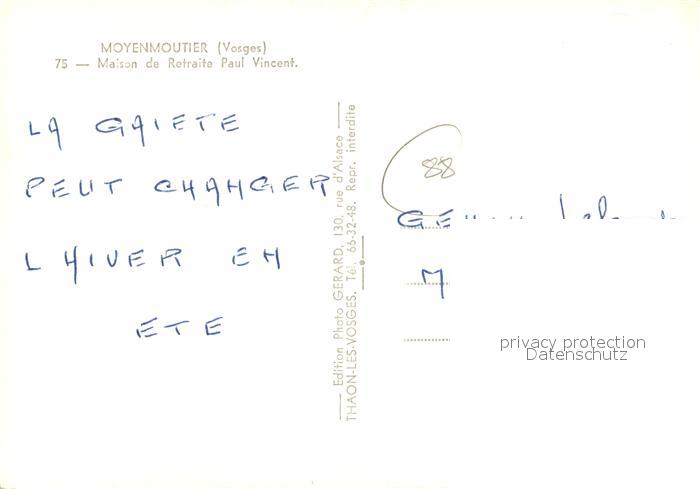 MOYENMOUTIER (Vosges)
75 — Maison de Retraite Paul Vincent.
LA GAIETE
PEUT CHANGER
L HIVER EN
ETE
Edition Photo GERARD, 130, rue d'Alsace
THAON-LES-VOSGES. Tél. 66-32-48. Repr. interdite
88
M
privacy protection
Datenschutz